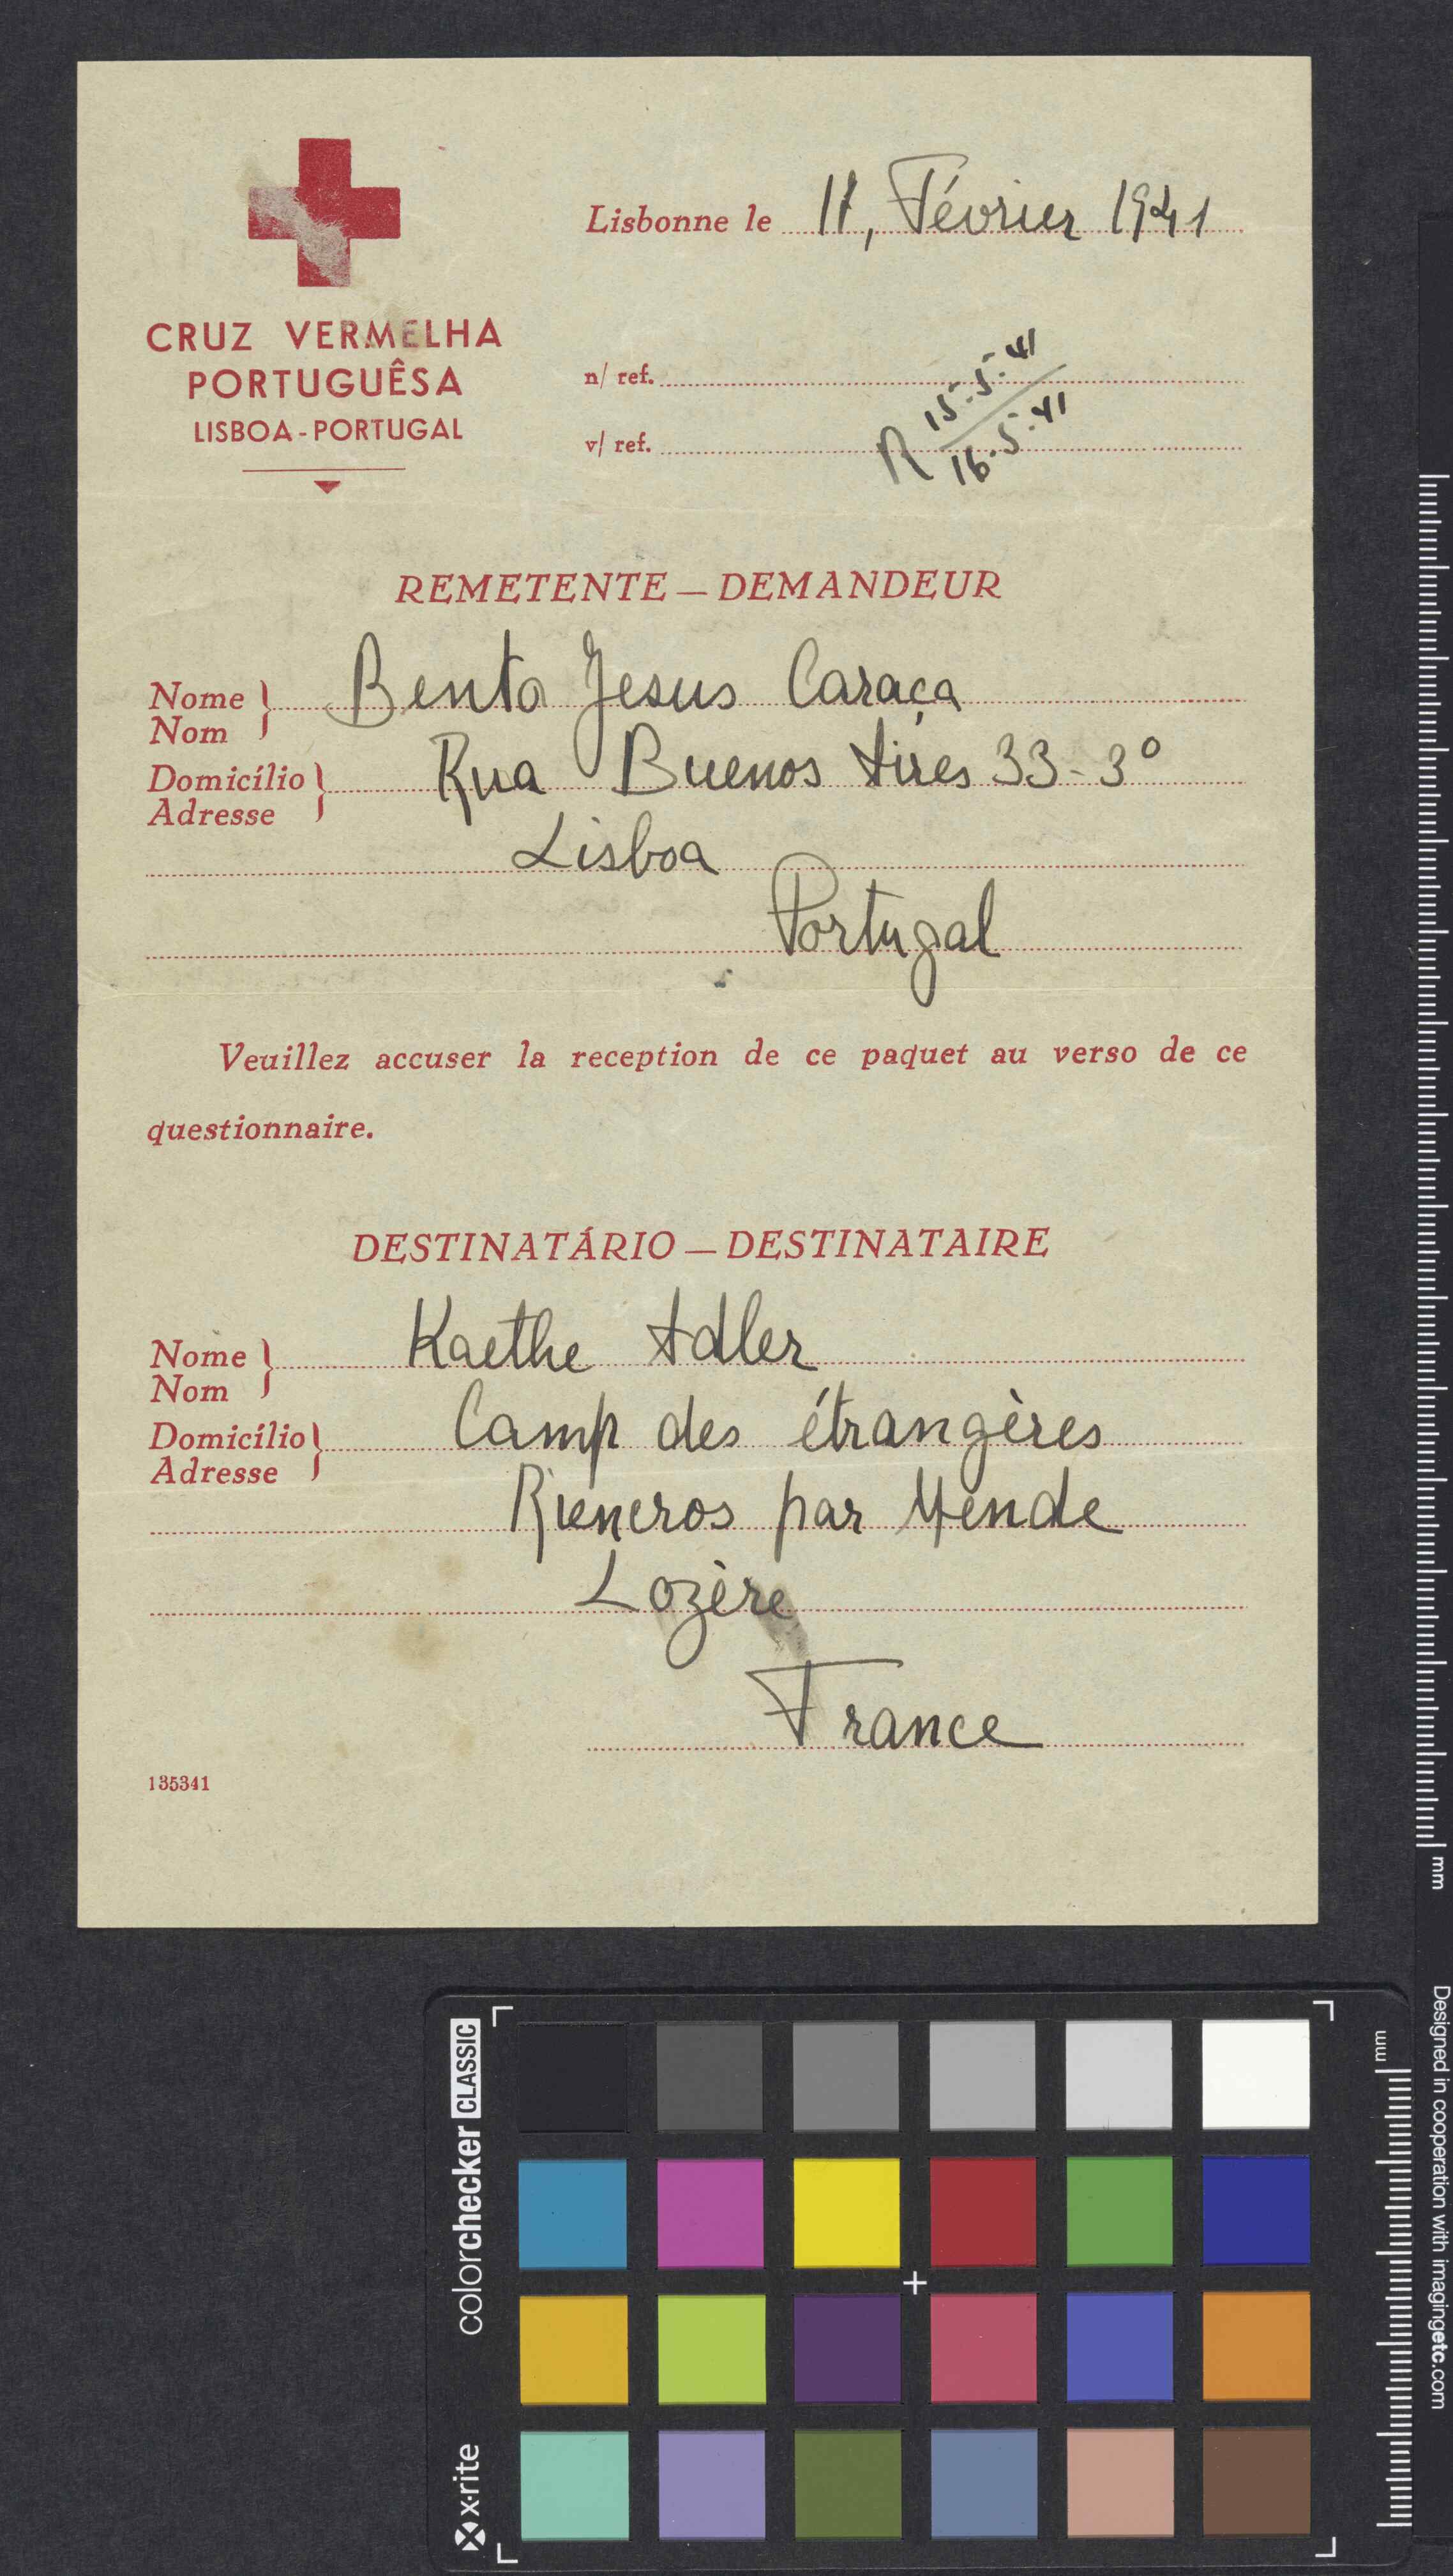 CRUZ VERMELHA
PORTUGUÊSA
LISBOA - PORTUGAL
Lisbonne le 11, Février 1941
n/ ref.
v/ ref.
R 15.5.41
16.5.41
REMETENTE — DEMANDEUR
Nome } Bento Jesus Caraça
Nom
Domicílio } Rua Buenos Aires 33-3º
Adresse
Lisboa
Portugal
Veuillez accuser la reception de ce paquet au verso de ce
questionnaire.
DESTINATÁRIO — DESTINATAIRE
Nome } Kaethe Adler
Nom
Domicílio } Camp des étrangères
Adresse
Rieucros par Mende
Lozère
France
135341
mm
Designed in cooperation with imagingetc.com
mm
colorchecker CLASSIC
x-rite